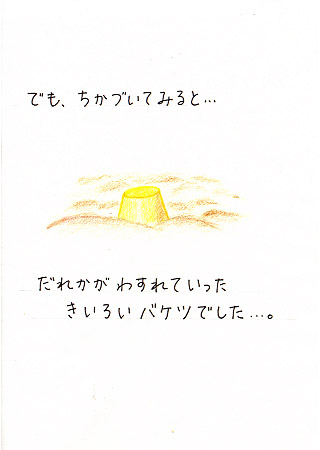 でも、ちかづいてみると…
だれかがわすれていった
きいろいバケツでした…。